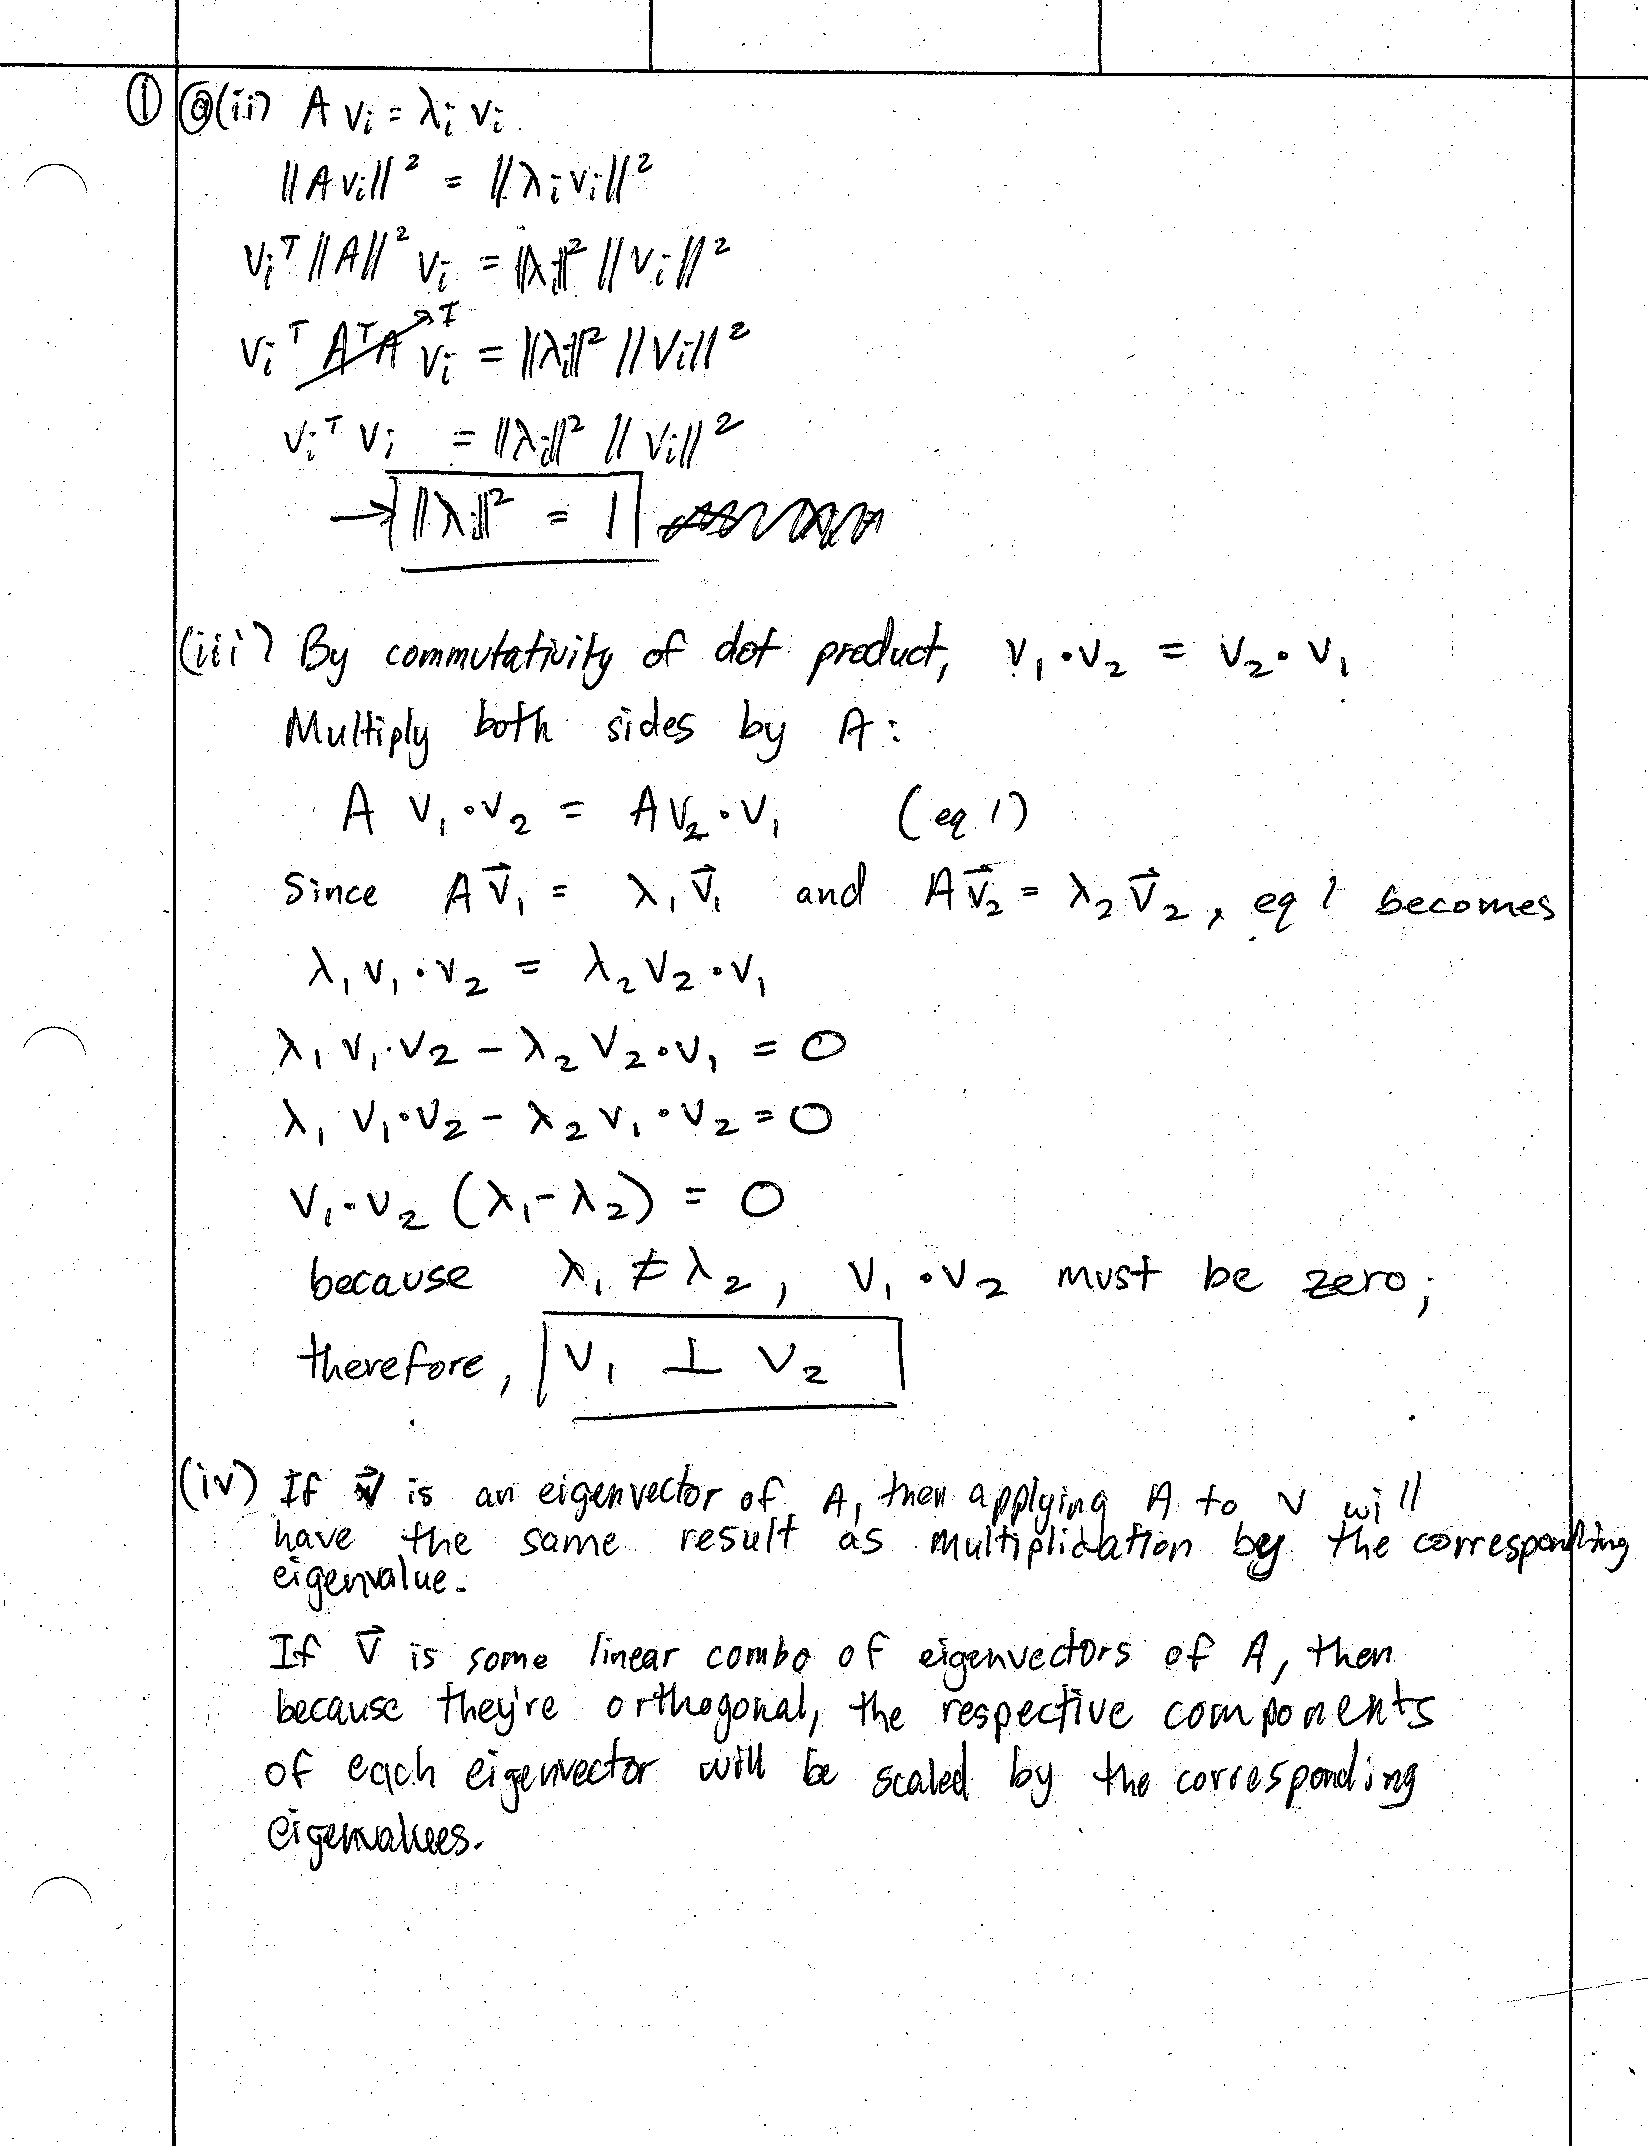 ① ⓐ(ii) A vᵢ = λᵢ vᵢ
‖A vᵢ‖² = ‖λᵢ vᵢ‖²
vᵢᵀ ‖A‖² vᵢ = ‖λᵢ‖² ‖vᵢ‖²
vᵢᵀ AᵀA vᵢ = ‖λᵢ‖² ‖vᵢ‖²
I
vᵢᵀ vᵢ = ‖λᵢ‖² ‖vᵢ‖²
→ ‖λᵢ‖² = 1
(iii) By commutativity of dot product, v₁ · v₂ = v₂ · v₁
Multiply both sides by A:
A v₁ · v₂ = A v₂ · v₁ (eq 1)
Since A v⃗₁ = λ₁ v⃗₁ and A v⃗₂ = λ₂ v⃗₂, eq 1 becomes
λ₁ v₁ · v₂ = λ₂ v₂ · v₁
λ₁ v₁ · v₂ − λ₂ v₂ · v₁ = 0
λ₁ v₁ · v₂ − λ₂ v₁ · v₂ = 0
v₁ · v₂ (λ₁ − λ₂) = 0
because λ₁ ≠ λ₂, v₁ · v₂ must be zero;
therefore, v₁ ⊥ v₂
(iv) If v⃗ is an eigenvector of A, then applying A to v will
have the same result as multiplication by the corresponding
eigenvalue.
If v⃗ is some linear combo of eigenvectors of A, then
because they're orthogonal, the respective components
of each eigenvector will be scaled by the corresponding
eigenvalues.